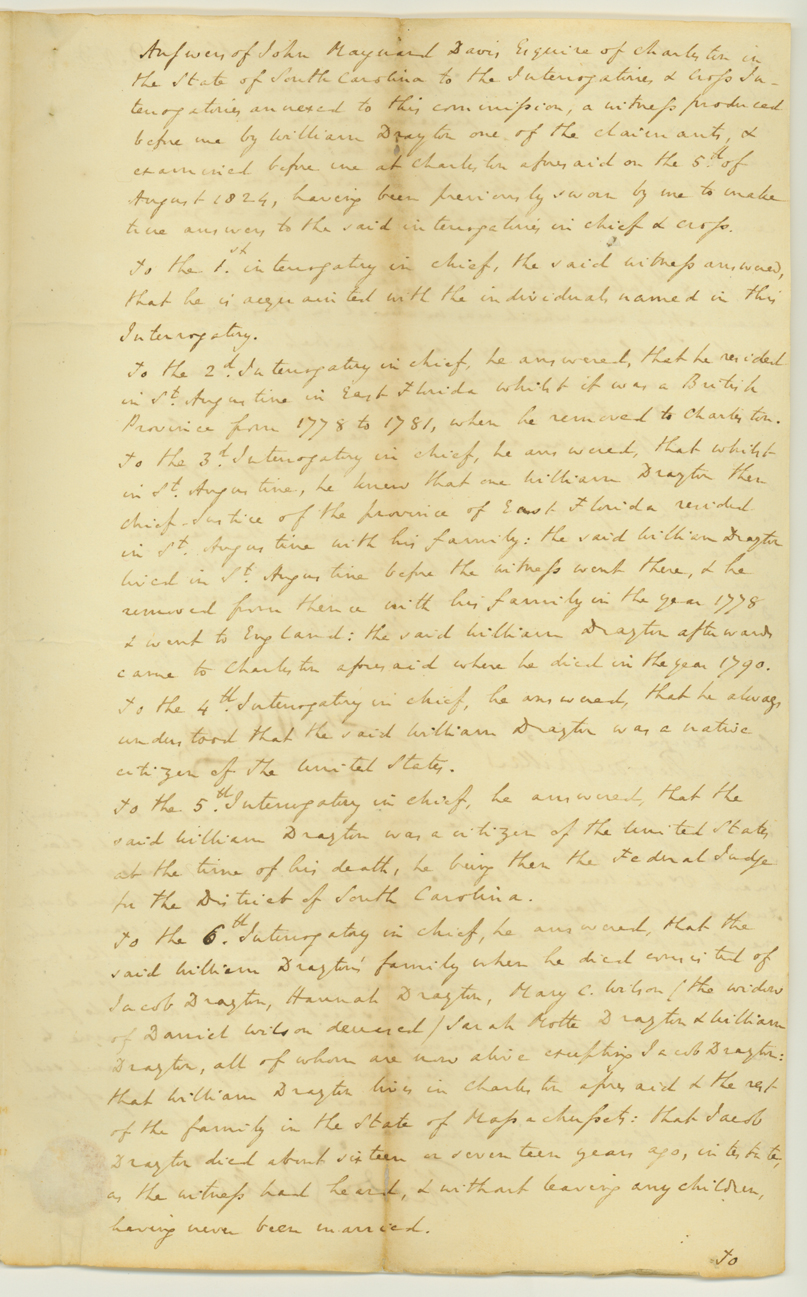 Answers of John Maynard Davis Esquire of Charleston in
the State of South Carolina to the Interrogatories & Cross In-
terrogatories annexed to this commission, a witness produced
before me by William Drayton one of the claimants, &
examined before me at Charleston aforesaid on the 5.th of
August 1824, having been previously sworn by me to make
true answers to the said interrogatories in chief & cross.
To the 1.st interrogatory in chief, the said witness answered,
that he is acquainted with the individuals named in this
Interrogatory.
To the 2.d Interrogatory in chief, he answered, that he resided
in St. Augustine in East Florida whilst it was a British
Province from 1778 to 1781, when he removed to Charleston.
To the 3.d Interrogatory in chief, he answered, that whilst
in St. Augustine, he knew that one William Drayton then
chief-Justice of the province of East Florida resided
in St. Augustine with his family: the said William Drayton
lived in St. Augustine before the witness went there, & he
removed from thence with his family in the year 1778
& went to England: the said William Drayton afterwards
came to Charleston aforesaid where he died in the year 1790.
To the 4th. Interrogatory in chief, he answered, that he always
understood that the said William Drayton was a native
citizen of the United States.
To the 5.th Interrogatory in chief, he answered, that the
said William Drayton was a citizen of the United States
at the time of his death, he being then the Federal Judge
for the District of South Carolina.
To the 6.th Interrogatory in chief, he answered, that the
said William Drayton's family when he died consisted of
Jacob Drayton, Hannah Drayton, Mary C. Wilson / the widow
of Daniel Wilson deceased / Sarah Motte Drayton & William
Drayton, all of whom are now alive excepting Jacob Drayton:
that William Drayton lives in Charleston aforesaid & the rest
of the family in the State of Massachussets: that Jacob
Drayton died about sixteen or seventeen years ago, intestate,
as the witness had heard, & without leaving any children,
having never been married.
To